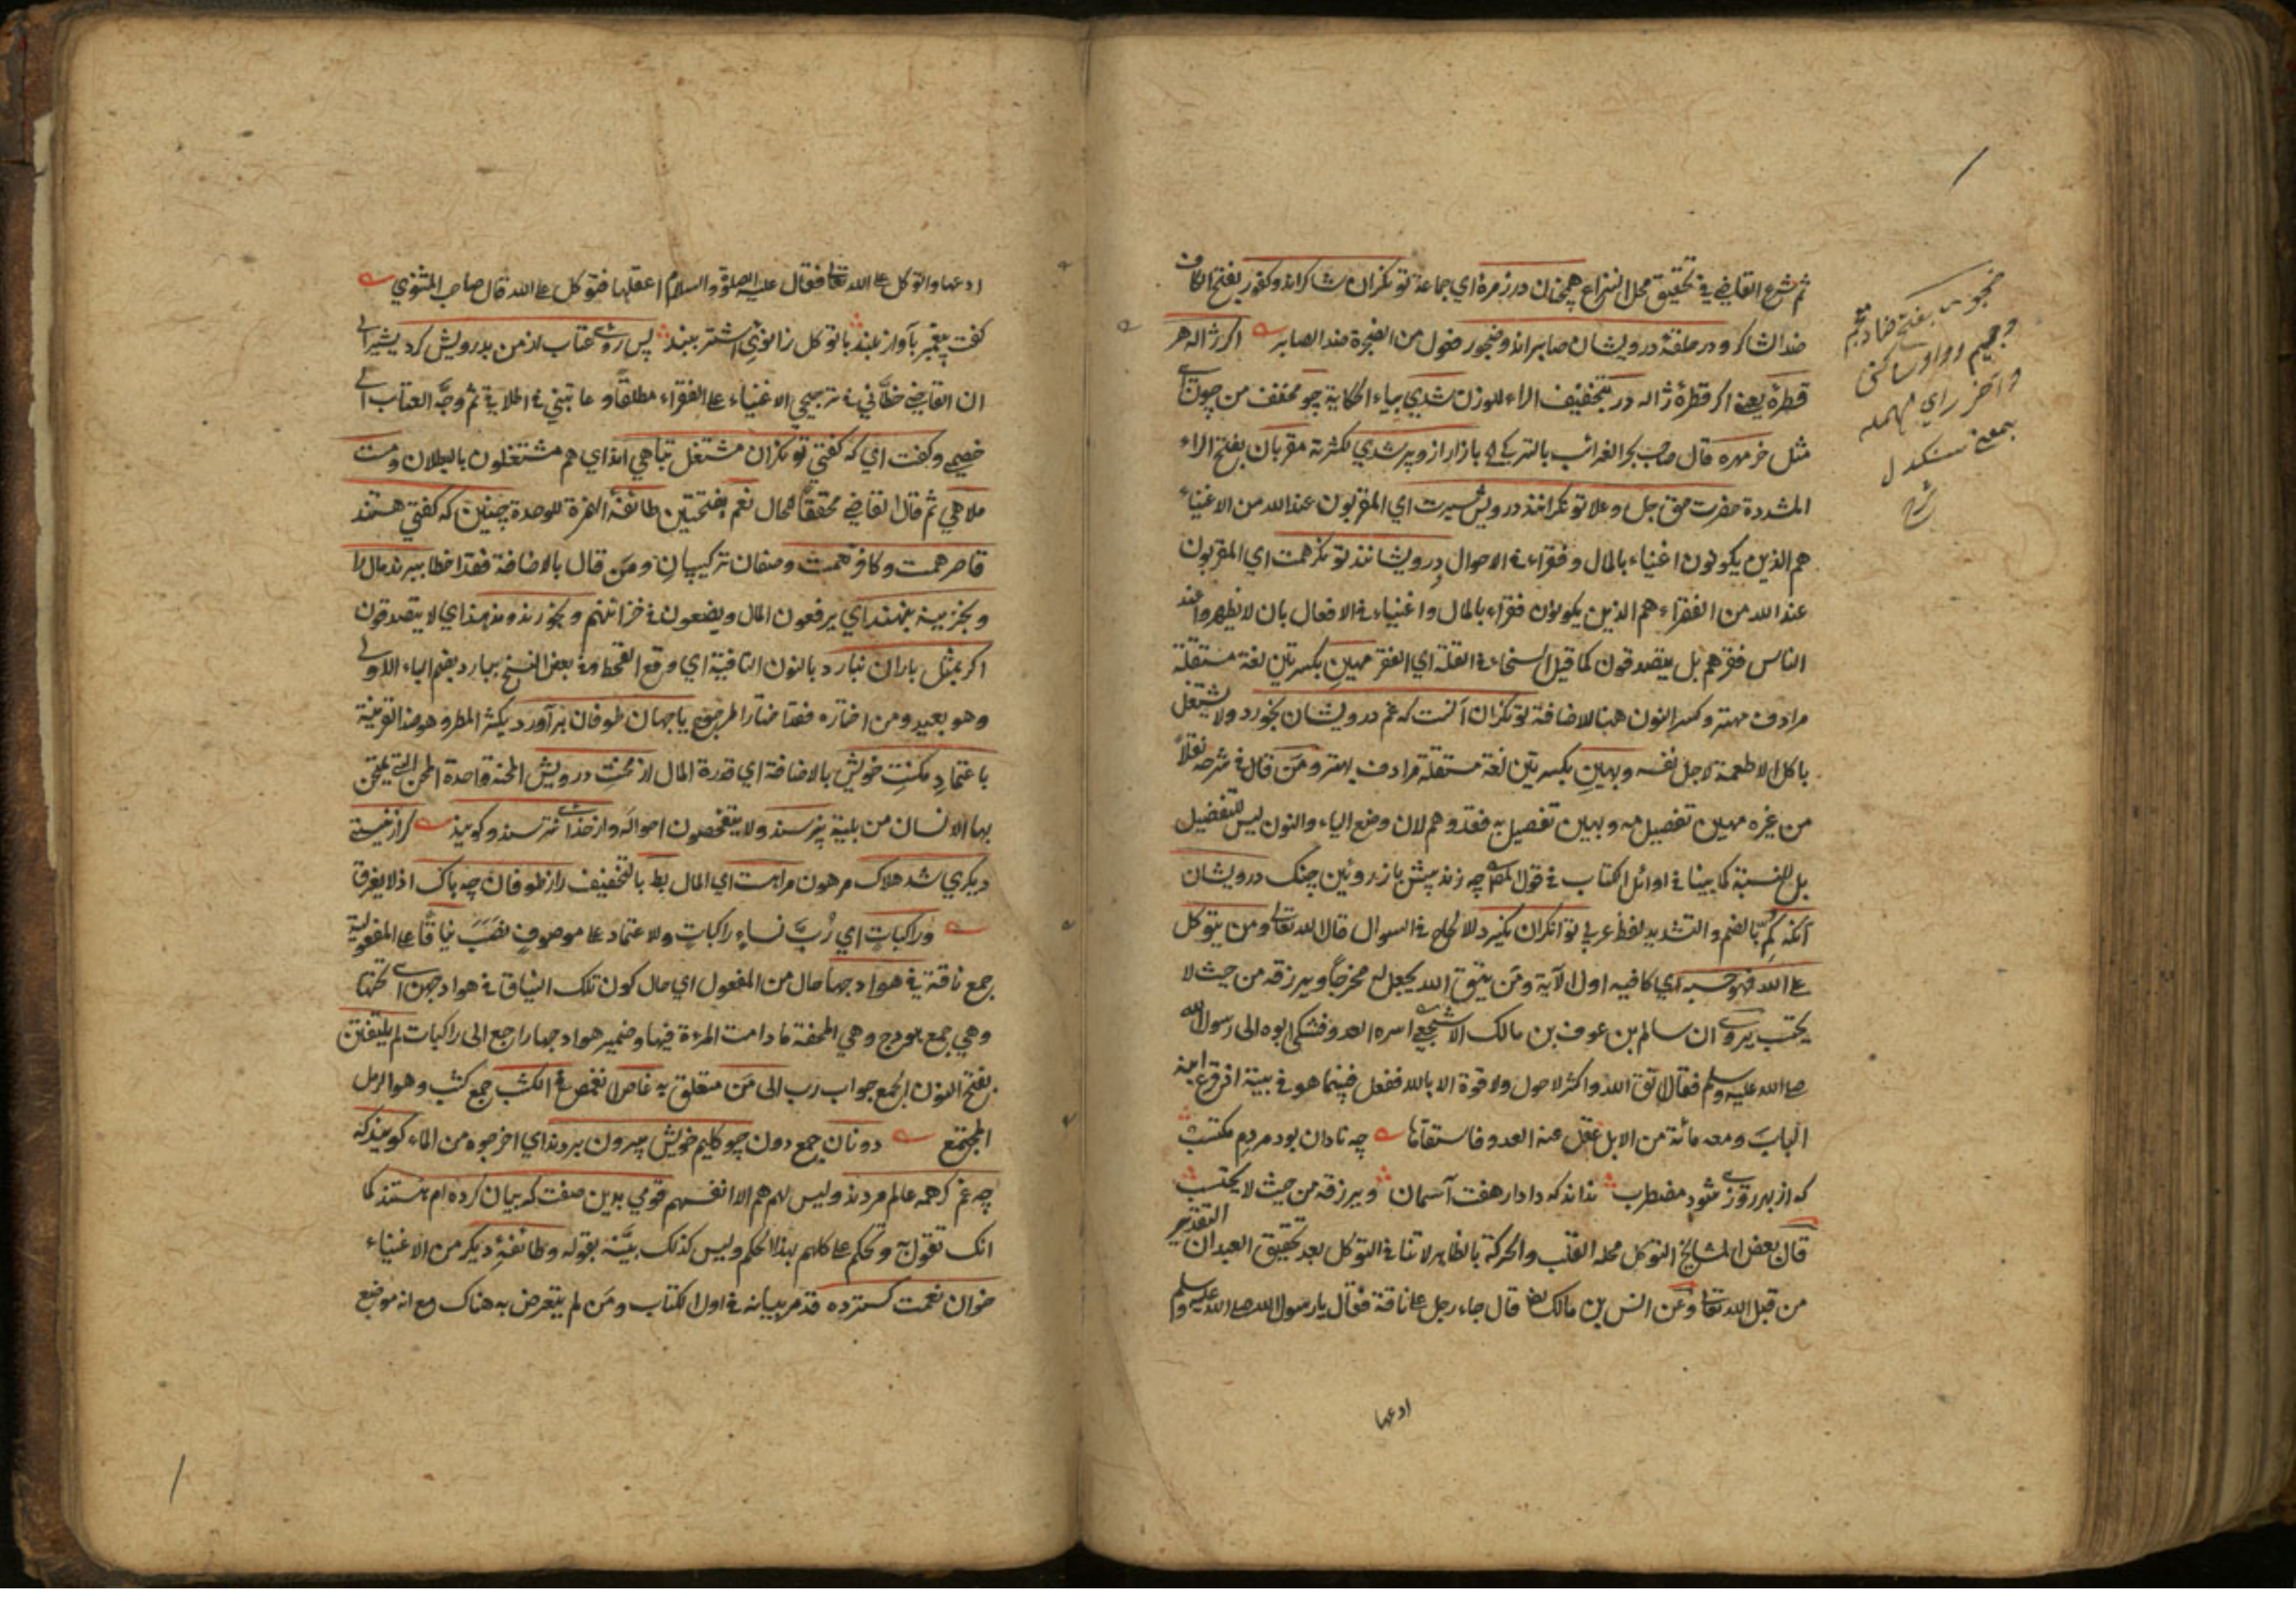 ثم شرع القاضي في تحقيق محل النزاع همچنان در زمرة اي جماعة توانكران شاكرانند وكفور بفتح الكاف
ضد الشاكر ودر حلقهٔ درويشان صابرانند وضجور فعول من الضجرة ضد الصابر اكر ژاله هر
قطرهٔ يعني اكر قطرهٔ ژاله در بتخفيف الراء للوزن شدي بياء الحكاية چو مخفف من چون اي
مثل خر مهره قال صاحب بحر الغرائب بالتركي بازار ازو پر شدي لكثرته مقربان بفتح الراء
المشددة حضرت حق جل وعلا توانكرانند درويش سيرت اي المقربون عند الله من الاغنياء
هم الذين يكونون اغنياء بالمال وفقراء في الاحوال ودرويشانند توانكر همت اي المقربون
عند الله من الفقراء هم الذين يكونون فقراء بالمال واغنياء في الافعال بان لا يظهروا عند
الناس فقرهم بل يتصدقون كما قيل السخاء في القلة اي الفقر مهين بكسرتين لغة مستقلة
مرادف مهتر وكسر النون هنا للاضافة توانكران آنست كه غم درويشان بخورد ولا يشتغل
باكل الاطعمة لاجل نفسه وبهين بكسرتين لغة مستقلة مرادف بهتر ومن قال في شرحه نقلاً
من غيره مهين تفصيل مه وبهين تفصيل به فقد وهم لان وضع الياء والنون ليس للتفضيل
بل للنسبة كما بينا في اوائل الكتاب في قول المص چه زند پيش باز روئين چنك درويشان
آنكه كم بالضم والتشديد لفظ عربي توانكران نكيرد للالحاح في السوال قال الله تعالى ومن يتوكل
على الله فهو حسبه اي كافيه اول الآية ومن يتق الله يجعل له مخرجاً ويرزقه من حيث لا
يحتسب يروى ان سالم بن عوف بن مالك الاشجعي اسره العدو فشكى ابوه الى رسول الله
صلى الله عليه وسلم فقال اتق الله واكثر لا حول ولا قوة الا بالله ففعل فبينما هو في بيته اذ قرع ابنه
الباب ومعه مائة من الابل غفل عنه العدو فاستقاها چه نادان بود مردم مكتسب
كه از بهر روزي شود مضطرب نداند كه دادار هفت آسمان ويرزقه من حيث لا يحتسب
قال بعض المشايخ التوكل محله القلب والحركة بالظاهر لا تنافي التوكل بعد تحقيق العبد ان التقدير
من قبل الله تعالى وعن انس بن مالك رضه قال جاء رجل على ناقة فقال يا رسول الله صلى الله عليه وسلم
ادعها
ضجور بفتح ضاد معجم
وجيم وواو ساكن
وآخر راي مهمله
بمعنى سنكدل
شرح
ادعها واتوكل على الله تعا فقال عليه الصلوة والسلام اعقلها فتوكل على الله قال صاحب المثنوي
كفت پيغمبر بآواز بلند با توكل زانوي اشتر ببند پس روي عتاب از من بدرويش كرد يشير الى
ان القاضي خطأني في ترجيحي الاغنياء على الفقراء مطلقاً وعاتبني في اطلاقه ثم وجه العتاب الى
خصمي وكفت اي كه كفتي توانكران مشتغل تباهي اند اي هم مشتغلون بالبطلان ومست
ملاهي ثم قال القاضي محققاً للحال نعم بفتحتين طائفة الهمزة للوحدة چنين كه كفتي هستند
قاصر همت وكافر نعمت وصفان تركيبيان ومن قال بالاضافة فقد اخطا ببرند مال را
وبخزينه بنهند اي يرفعون المال ويضعون في خزائنهم وبخورند وندهند اي لا يتصدقون
اكر بمثل باران نبارد بالنون النافية اي وقع القحط وفي بعض النسخ ببارد بضم الباء الاولى
وهو بعيد ومن اختاره فقد اختار المرجوح يا جهان طوفان برآورد بكثر المطر وهو ضد القرينة
باعتماد مكنت خويش بالاضافة اي قدرة المال از محنت درويش المحنة واحدة المحن التي يمتحن
بها الانسان من بلية نپرسند ولا يتفحصون احواله واز خداي نترسند وكويند كر از نيستي
ديكري شد هلاك مرهون مراهست اي المال بط بالتخفيف را ز طوفان چه باك اذ لا يغرق
وراكبات اي رُبّ نساء راكبات ولاعتماده على موصوف نصب نياقاً على المفعولية
جمع ناقة في هوادجها حال من المفعول اي حال كون تلك النياق في هوادجهن اي تحتها
وهي جمع هودج وهي المحفة ما دامت المرءة فيها وضمير هوادجها راجع الى راكبات لم يلتفتن
بفتح النون الجمع جواب رب الى مَن متعلق به غاص اي تغمص في الكثب جمع كثب وهو الرمل
المجتمع دونان جمع دون چو كليم خويش بيرون بردند اي اخرجوه من الماء كويند كه
چه غم كر همه عالم مردند وليس لهم هم الا انفسهم قومي بدين صفت كه بيان كرده ام هستند كما
انك تقول به وتحكم على كلهم بهذا الحكم وليس كذلك بيّنه بقوله وطائفهٔ ديكر من الاغنياء
خوان نعمت كسترده قد مر بيانه في اول الكتاب ومن لم يتعرض به هناك مع انه موضع